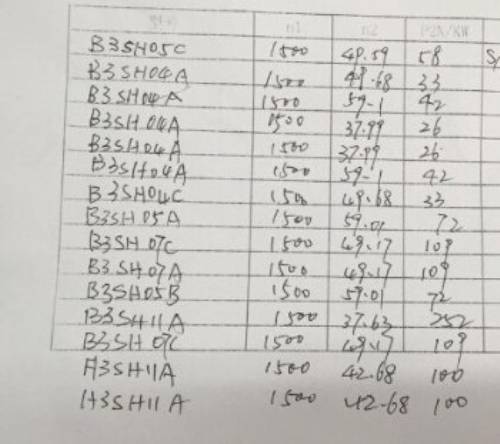 n1 n2 P2N/KW
B3SH05C 1500 49.59 58
B3SH04A 1500 49.68 33
B3SH04A 1500 59.1 42
B3SH04A 1500 37.99 26
B3SH04A 1500 37.99 26
B3SH04A 1500 59.1 42
B3SH04C 1500 49.68 33
B3SH05A 1500 59.01 72
B3SH07C 1500 49.17 109
B3SH07A 1500 49.17 109
B3SH05B 1500 59.01 72
B3SH11A 1500 37.63 252
B3SH07C 1500 49.17 109
H3SH11A 1500 42.68 100
H3SH11A 1500 42.68 100